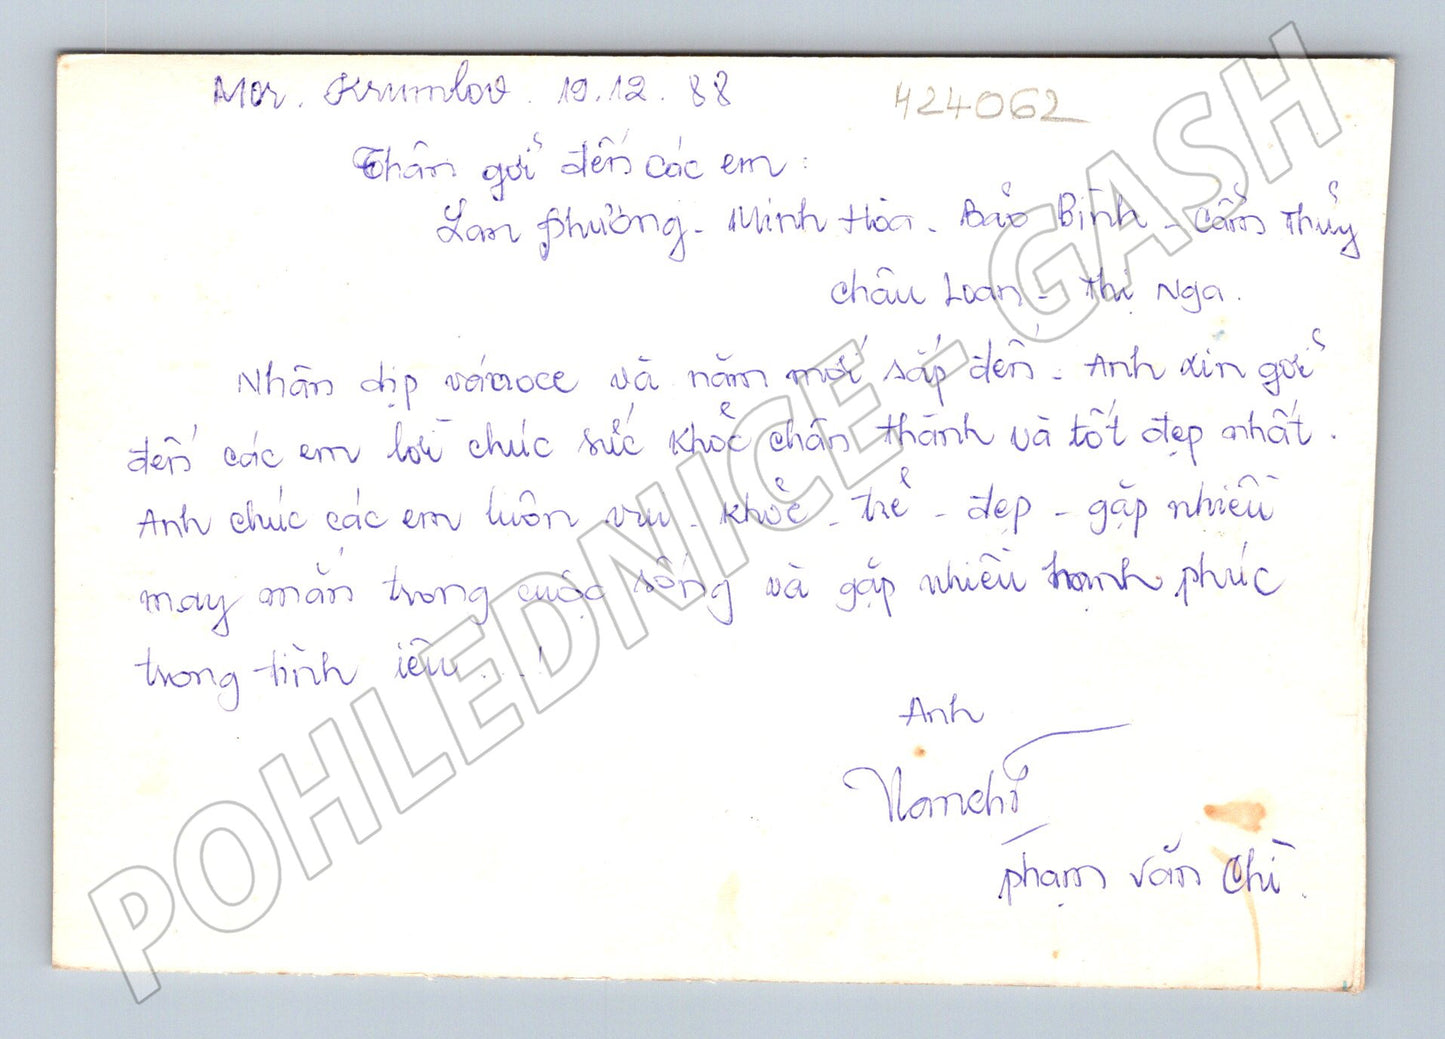 Mor. Krumlov. 19.12.88
424062
Thân gởi đến các em:
Lan Phường - Minh Hòa - Bảo Bình - Cẩm Thủy
Châu Loan - Thị Nga.
Nhân dịp vánoce và năm mới sắp đến. Anh xin gởi
đến các em lời chúc sức khoẻ chân thành và tốt đẹp nhất.
Anh chúc các em luôn vui - khoẻ - trẻ - đẹp - gặp nhiều
may mắn trong cuộc sống và gặp nhiều hạnh phúc
trong tình iêu...!
Anh
Phạm Văn Chì.
POHLEDNICE - GASH